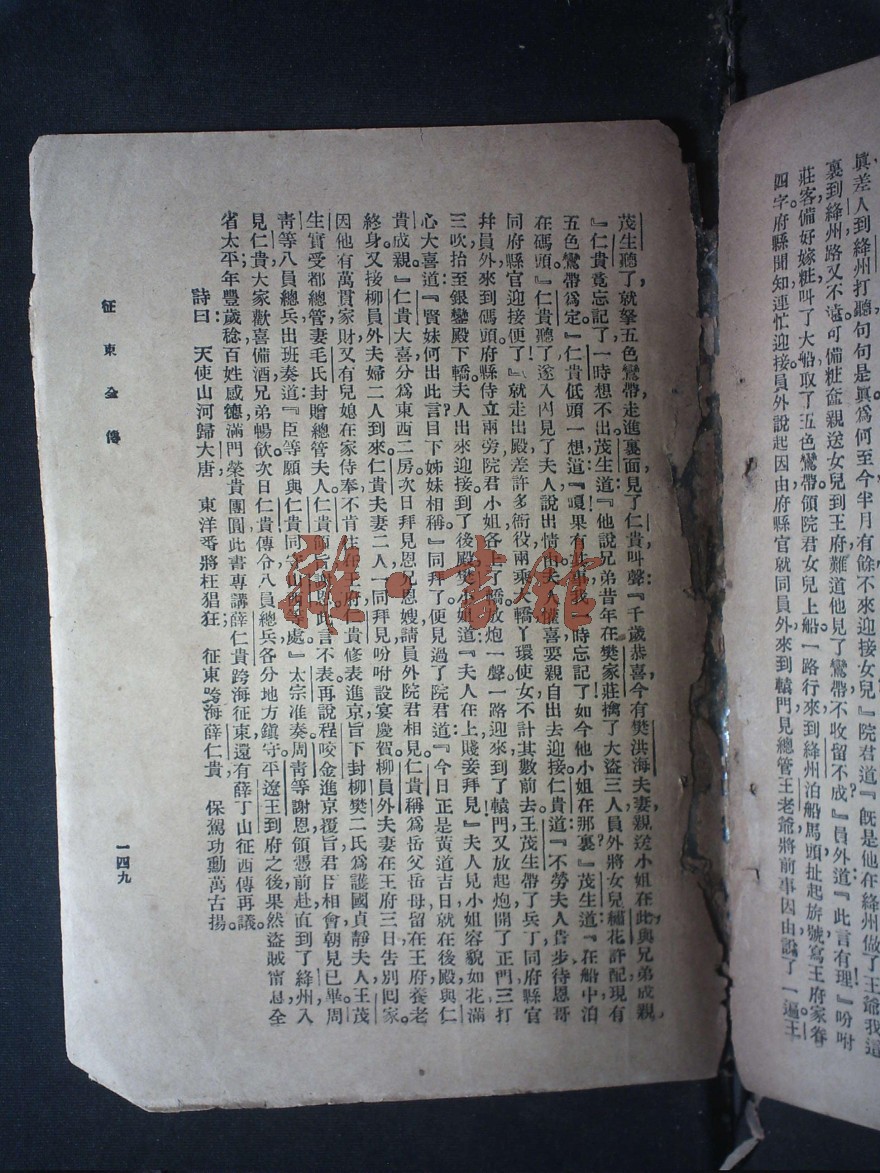 眞差人到絳州打聽句句是眞爲何至今半月有餘不接女兒』院君道『旣是他在絳州做了王爺我這
裏到絳州路又不遠可備粧奩親送女兒到王府難道他見了鸞帶不收留不成』員外道『此言有理』吩咐
莊客備好嫁粧叫了大船取了五色鸞帶領院君女兒上船一路行來到絳州泊船馬頭扯起旂號寫王府家眷
四字府縣聞知連忙迎接員外說起因由府縣官就同員外來到轅門見總管王老爺將前事因由說了一遍王
茂生聽了就拏五色鸞帶走進裏面見了仁貴叫聲『千歲恭喜今有樊洪海夫妻親送小姐在此與兄弟成親
』仁貴竟忘記了一時想不出茂生道『他說兄弟昔年在樊家莊擒了大盜三人員外將女兒繡花許配現有
五色鸞帶爲定』仁貴低頭一想道『嗄果有其事我一時忘記了如今他小姐在那裏』茂生道『在船中泊
在碼頭』仁貴聽了遂入內見了夫人說出情由夫人懽喜要親自出去迎接仁貴道『不勞夫人貴步待恩哥
同府縣官迎接便了』就走出殿差許多衙役兩乘大轎丫環使女不計其數前去王茂生帶了兵丁同府縣官
幷員外來到碼頭府縣侍立兩旁院君小姐各上了轎放炮一聲一路迎來到了轅門又放起炮開了正門三打
三吹抬至銀鑾殿下轎夫人出來迎接到了後殿樊小姐道『夫人在上賤妾拜見』夫人見小姐容貌如花滿
心大喜道『賢妹何出此言目下姊妹相稱』同拜了便見過了院君道『今日正是黃道吉日就在後殿與仁
貴成親』仁貴大喜分爲東西二房次日拜見恩兄恩嫂請員外院君相見仁貴稱爲岳父岳母留在王府養老
終身又接柳員外夫婦二人到來仁貴夫妻二人一同拜見吩咐設宴慶賀柳員外夫妻在王府三日告別回家
因他有萬貫家財又有兒媳在家侍奉不肯住在王府仁貴修表進京旨下封柳樊二氏爲護國貞靜夫人王茂
生實受都總管妻毛氏封贈總管夫人仁貴 旨謝恩此言不表再說程咬金進京覆旨君臣相會朝見已畢周
靑等八員總兵出班奏道『臣等願與仁貴同守山西等處』太宗准奏周靑等謝恩領憑前赴直到了絳州入
見仁貴大家歡喜備酒兄弟暢飮次日仁貴傳令八員總兵各分地方鎭守平遼王到府之後果然盜賊甯息全
省太平年豐歲稔百姓感德滿門榮貴團圓此書專講薛仁貴跨海征東還有薛丁山征西傳再議
詩曰 天使山河歸大唐 東洋番將枉猖狂 征東跨海薛仁貴 保駕功勳萬古揚
征東全傳 一四九
雅·書館